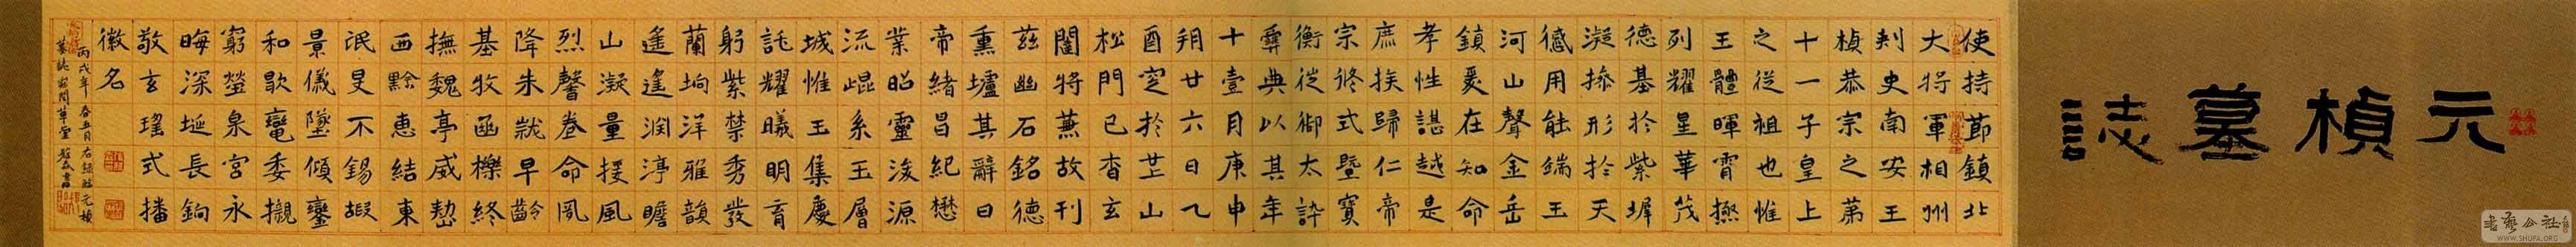 元楨墓誌
使持節鎮北
大将軍相州
刾史南安王
楨恭宗之苐
十一子皇上
之従祖也惟
王體暉霄極
列耀星華茂
德基於紫墀
凝摻形於天
感用能端玉
河山聲金岳
鎮爰在知命
孝性諶越是
庶族歸仁帝
宗終式暨寶
衡従御太訃
彝典以其年
十壹月庚申
朔廿六日乙
酉窆於芒山
松門已杳玄
闥将蕪故刊
茲幽石銘德
熏壚其辭曰
帝緒昌紀懋
業昭靈浚源
流崐系玉層
城惟玉集慶
託耀曦明育
躬紫禁秀發
蘭坰洋雅韻
遙遙淵渟瞻
山凝量援風
烈馨卷命夙
降朱黻早齡
基牧函櫟終
撫魏亭威懃
西黔惠結東
氓旻不錫嘏
景儀墜傾鑾
和歇鑾委櫬
窮塋泉宮永
晦深埏長鉤
敬玄瑤式播
徽名
丙戌年春五月右録臨元楨
墓誌 閒草堂 書
書藝公社
WWW.SHUFA.ORG